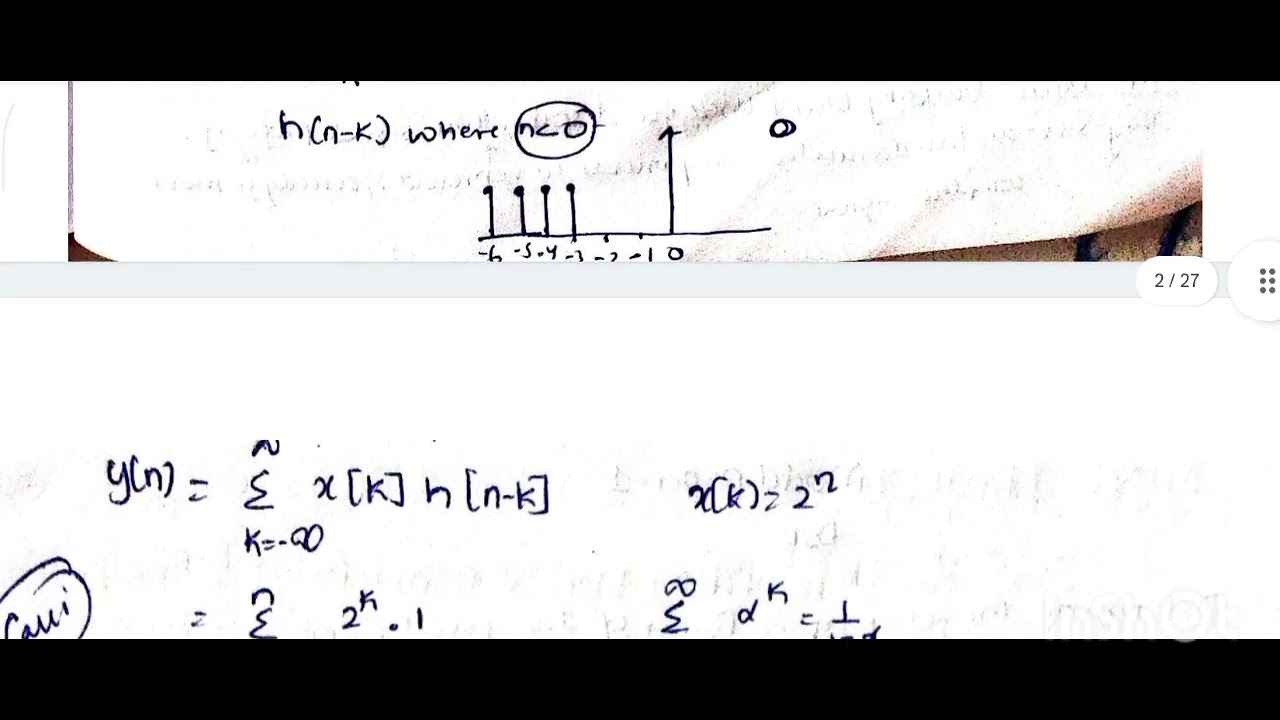 h(n-k) where n<0
-6 -5 -4 -3 -2 -1 0
2 / 27
y(n) = ∞ Σ k=-∞ x[k] h[n-k] x(k) = 2^n
= n Σ 2^k . 1 ∞ Σ α^k = 1
InShOt